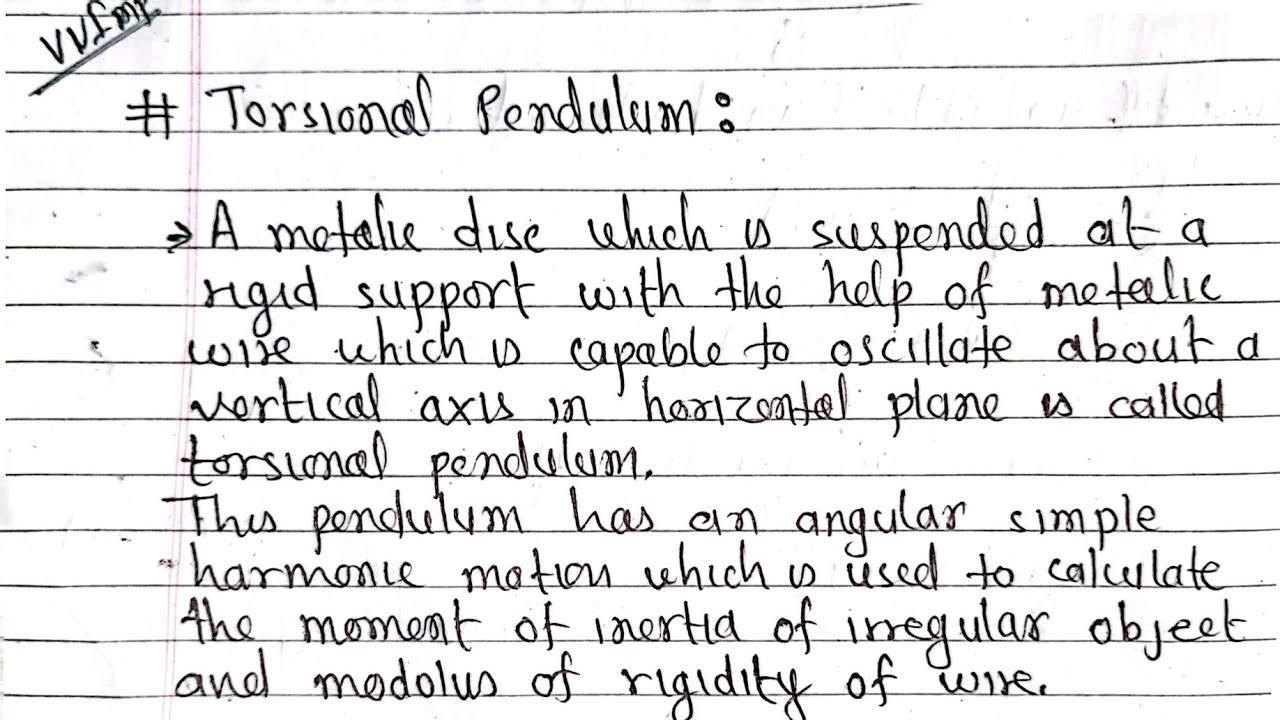 VVImp.
# Torsional Pendulum:
→ A metalic disc which is suspended at a
rigid support with the help of metallic
wire which is capable to oscillate about a
vertical axis in horizontal plane is called
torsional pendulum.
This pendulum has an angular simple
harmonic motion which is used to calculate
the moment of inertia of irregular object
and modolus of rigidity of wire.